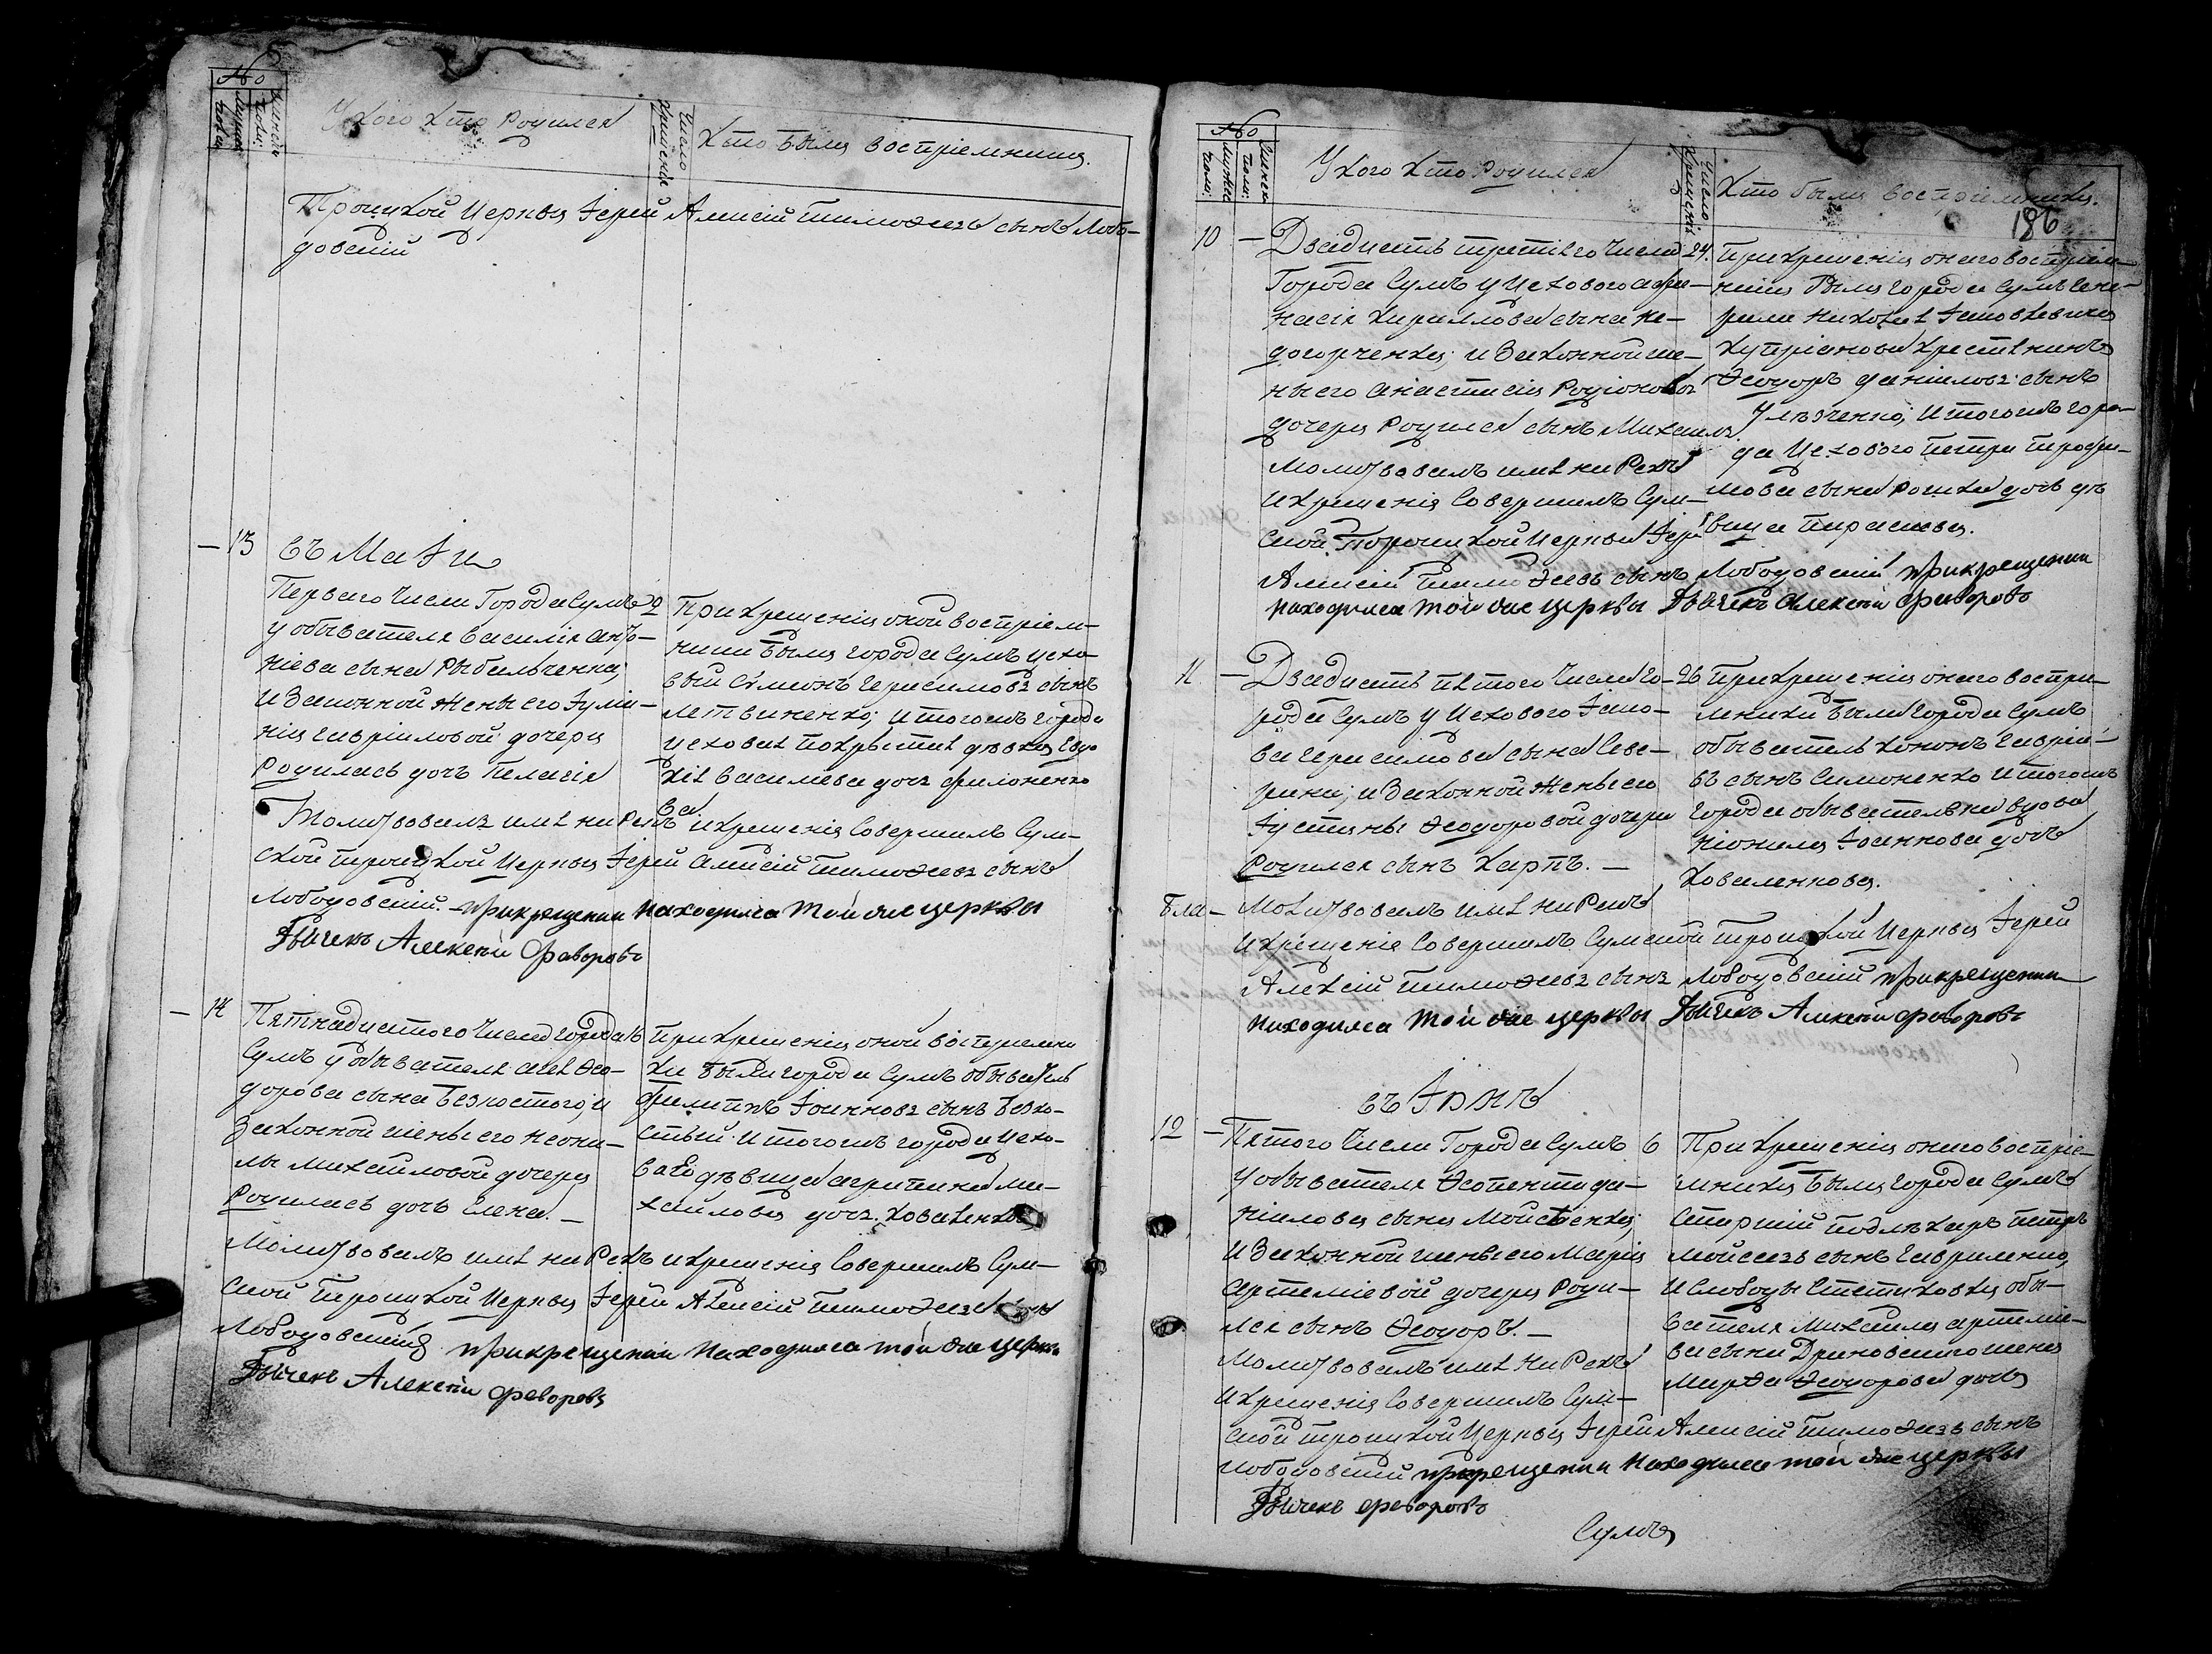 №
Женска полу:
Мужска полу:
У кого кто родился
Число крещенія
Кто были воспріемники.
Троицкой Церквы Іерей Алексій Тимоѳеевъ сынъ Лобо-
довскій
13 въ Маіи
Перваго числа Города Сумъ 2
у обывателя Василія Анто-
ніева сына Рыбальченка,
и законной жены его Іулиа-
ніи Гавріиловой дочери
родилась дочь Пелагія
При крещеніи оной воспріем-
ники были города Сумъ цехо-
вый Сѵмеонъ Герасимовъ сынъ
Летвиненко; и тогожъ города
Василіева дочь Филоненко
ва
Молитвовалъ имя нарекъ и крещеніе совершилъ Сум-
ской Троицкой Церквы Іерей Алексій Тимоѳеевъ сынъ
Лобоdовскій. при крещении находился той же церквы
Дьячекъ Алексѣй Фаворовъ
14 Пятнадцатого числа города 16
Сумъ у обывателя Ѳео-
дорова сына Безкостого, и
законной жены его Неони-
лы Михайловой дочери
родилась дочь Елена. —
При крещеніи оной воспріемни
ки были города Сумъ обыватель
Филиппъ Іоанновъ сынъ Безко-
стый и тогожъ города цехо-
ваго дѣвица Агрипина Ми-
хайлова дочь Коваленкова
Молитвовалъ имя нарекъ и крещеніе совершилъ Сум-
ской Троицкой Церквы Іерей Алексій Тимоѳеевъ сынъ
Лобоdовскій при крещении находился той же церкви
Дьячекъ Алексѣй Фаворовъ
№
Мужес. пол:
Женск. пол:
У кого кто родился
Число крещеній
Кто были воспріемники.
186
10 — Двадцать третяго числа 24.
Города Сумъ у цехового Афа-
насія Кириллова сына Не-
догорченка; и законной же-
ны его Анастасіи Родіоновой
дочери родился сынъ Михаилъ.
Молитвовалъ имя нарекъ
и крещеніе совершилъ Сум-
ской Троицкой Церкви Іерей
При крещеніи онаго воспріем-
ники были города Сумъ Гене-
рала Николая Іаковлевича
Купріанова крестянинъ
Ѳеодоръ Даніиловъ сынъ
и тогожъ горо-
да цехового Петра Трофи-
мова сына дочь дѣ
вица Параскева.
Алексій Тимоѳеевъ сынъ Лободовскій при крещении
находился той же церквы Дьячекъ Алексѣй Фаворовъ
11 — Двадцать пятого числа го- 26
рода Сумъ у цехового Іако-
ва Герасимова сына Севе-
рина; и законной жены его
Іустины Ѳеодоровой дочери
родился сынъ Карпъ. —
При крещеніи онаго воспрі-
мники были города Сумъ
обыватель Кононъ Гавріи-
въ сынъ Симоненко и тогожъ
города обывателька вдова
Іоаннова дочь
Коваленкова.
Молитвовалъ имя нарекъ
и крещеніе совершилъ Сумской Троицкой Церквы Іерей
Алексій Тимоѳеевъ сынъ Лободовскій при крещении
находился той же церквы Дьячекъ Алексѣй Фаворовъ
въ Іюнѣ
12 — Пятого числа Города Сумъ 6
у обывателя Ѳеопента Да-
ніилова сына Мойсѣенка;
и законной жены его Маріи
Артеміевой дочери роди-
лся сынъ Ѳеодоръ. —
При крещеніи онаго воспріе-
мники были города Сумъ
Старшій подлѣкарь Петръ
Мойсеевъ сынъ Гавриленко,
и слободы Степановки обы-
вателя Михаила Артеміе-
ва сына жена
Марѳа Ѳеодорова дочь
Молитвовалъ имя нарекъ
и крещеніе совершилъ Сум-
ской Троицкой Церквы Іерей Алексій Тимоѳеевъ сынъ
Лободовскій при крещении находился той же церквы
Дьячекъ Фаворовъ
Сумъ